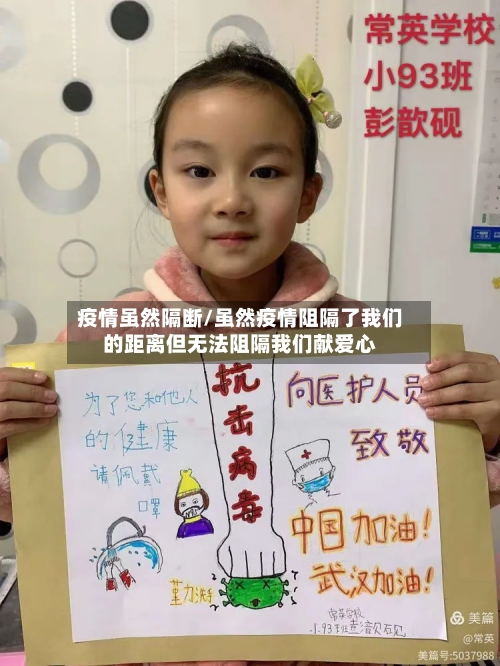 常英学校
小93班
彭歆砚
疫情虽然隔断/虽然疫情阻隔了我们
的距离但无法阻隔我们献爱心
为了您和他人
的健康
请佩戴
口罩
抗击病毒
向医护人员
致敬
中国加油!
武汉加油!
勤力洗手
常英学校
小93班
美篇
@常英
美篇号:5037988